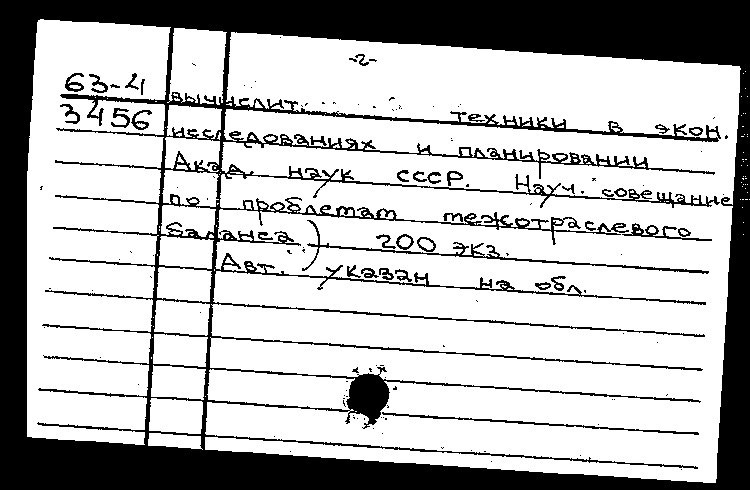 -2-
63-4
3456
вычислит. техники в экон.
исследованиях и планировании
Акад. наук СССР. Науч. совещание
по проблемам межотраслевого
баланса). 200 экз.
Авт. указан на обл.